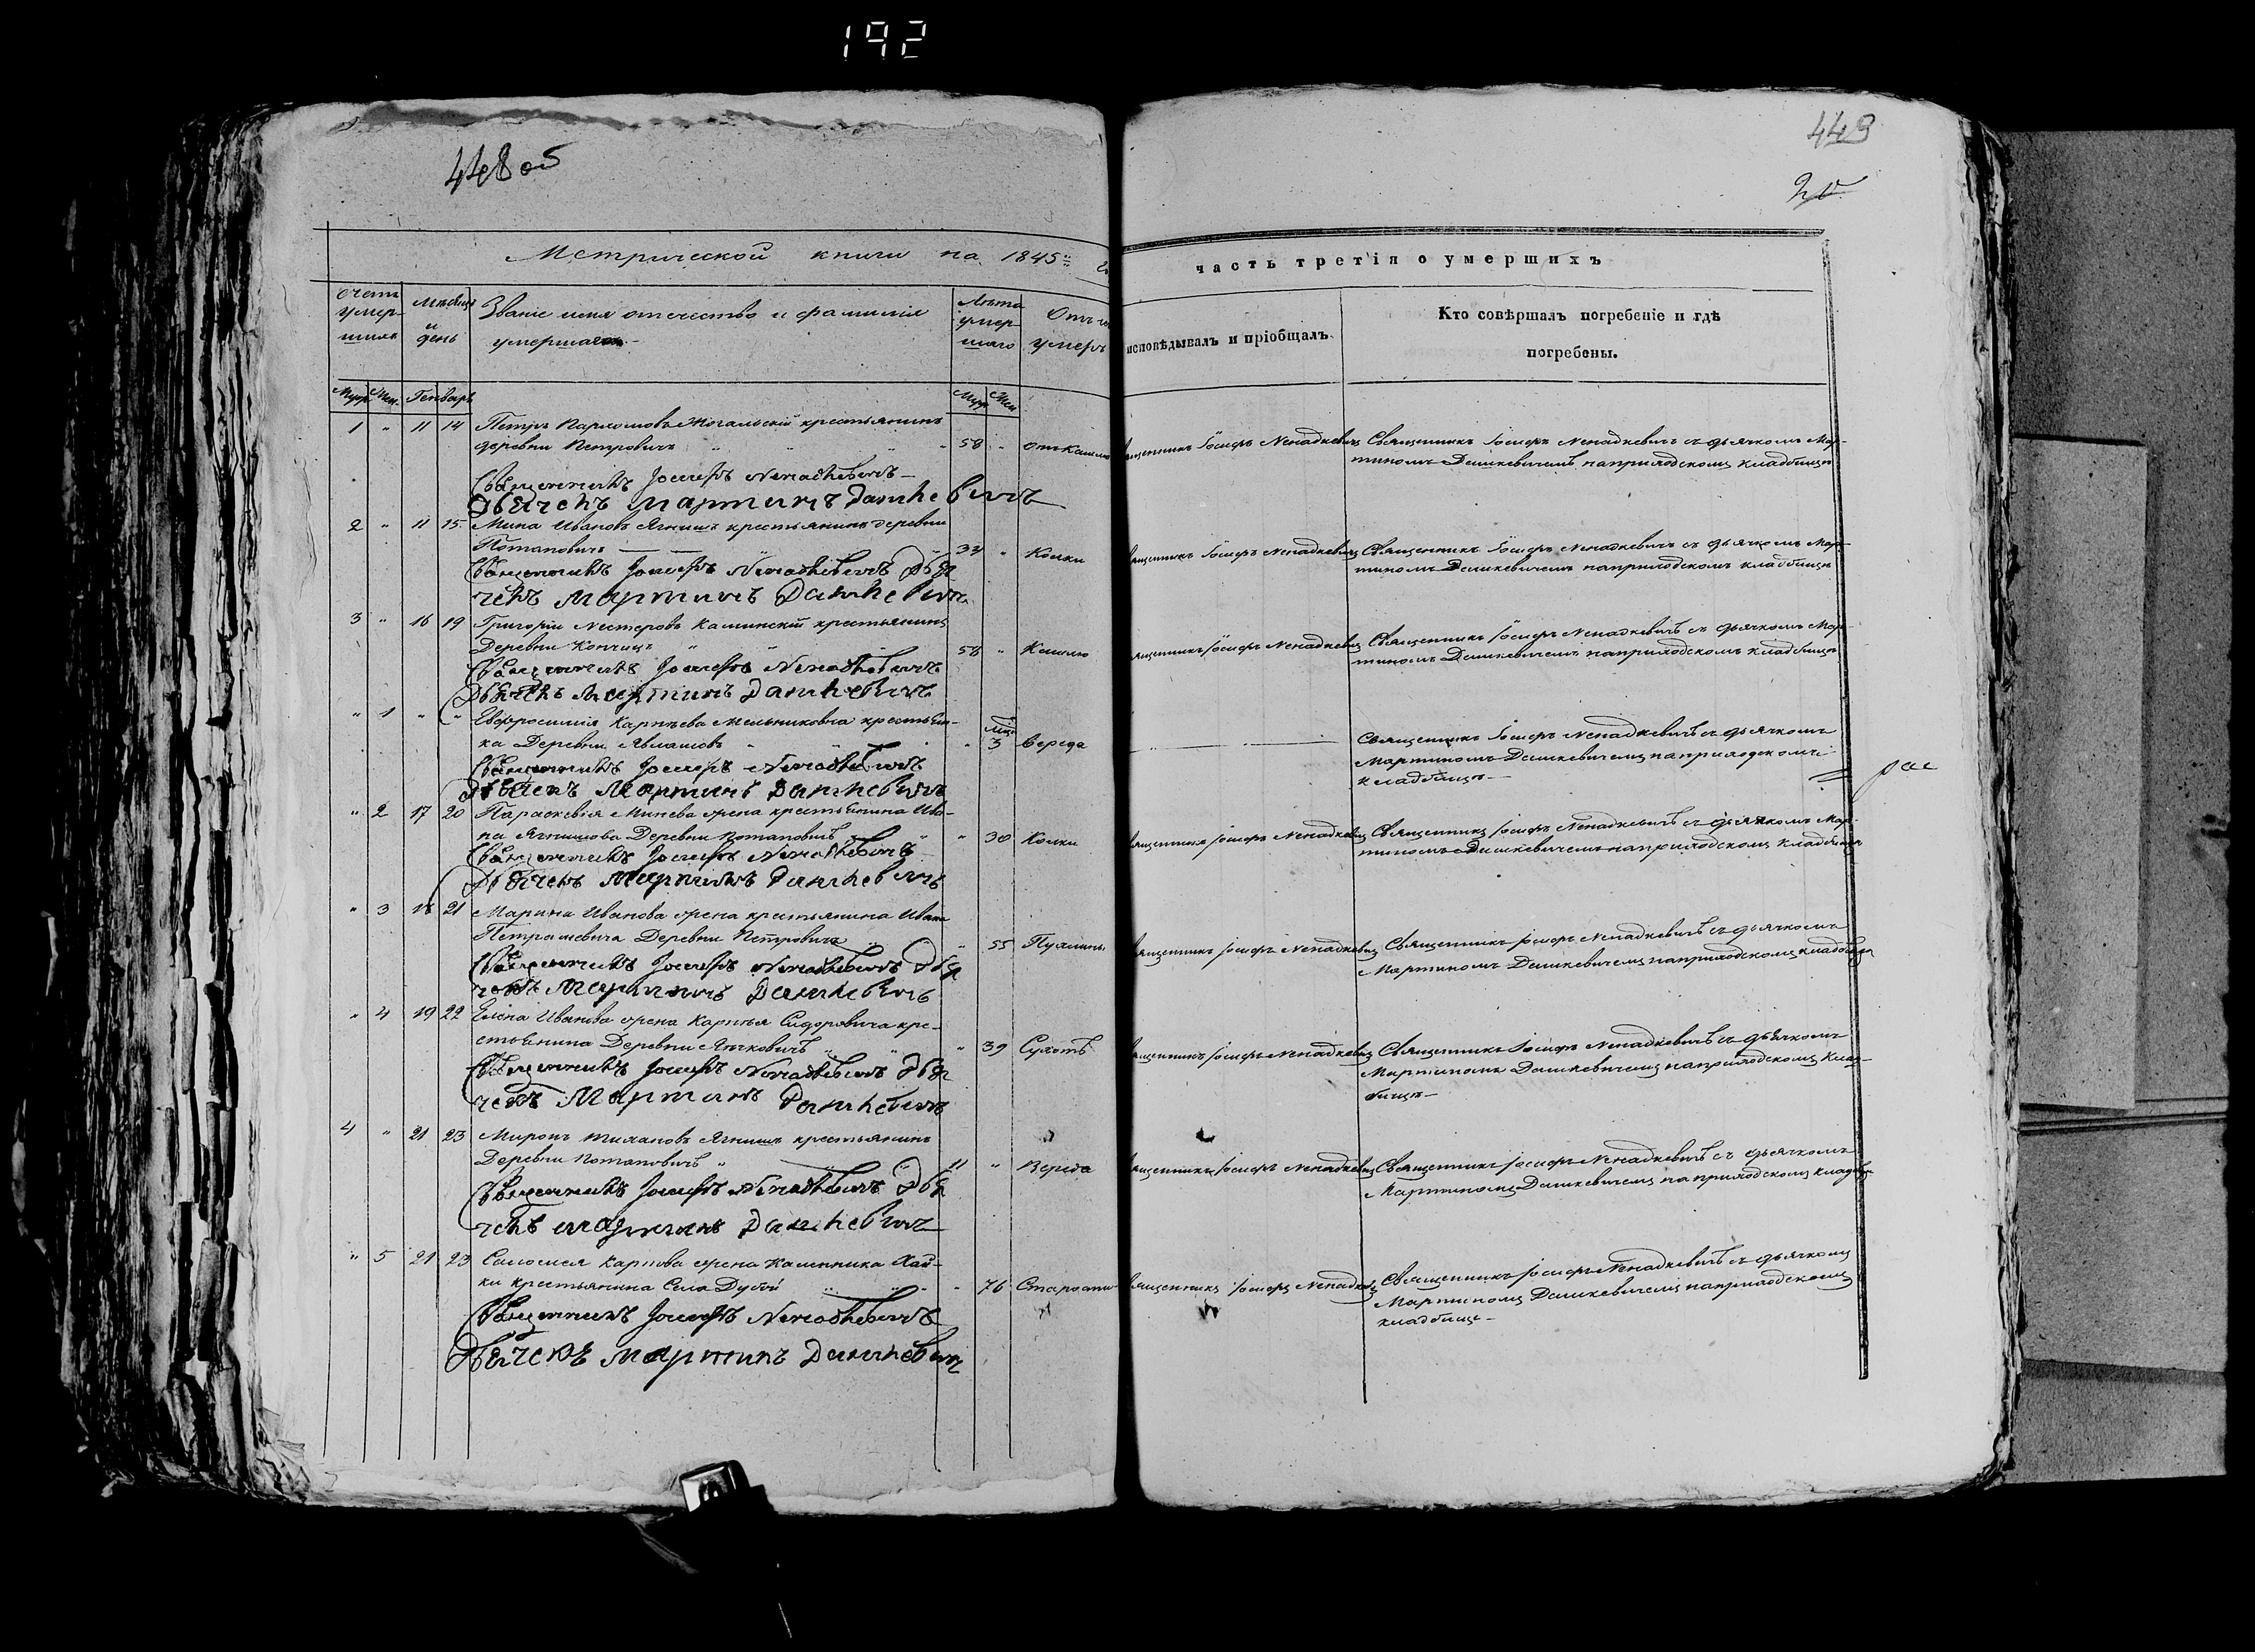 192
448 об
449
20
Метрической книги на 1845
часть третія о умершихъ
счетъ умершихъ
Мѣсяцъ и день
Званіе имя отчество и фамилія умершаго
Лѣта умершаго
Отъ чего умеръ
исповѣдывалъ и пріобщалъ
Кто совѣршалъ погребеніе и гдѣ
погребены.
Муж Жен. Генварь
Муж Жен
1 " 11 14 крестьянинъ
деревни Петровичь 58 " отъ кашлю
Священникъ Іосифъ Ненадкевичъ Священникъ Іосифъ Ненадкевичъ съ дьячкомъ Мар-
тиномъ Дашкевичемъ на приходскомъ кладбищѣ
Священникъ Іосифъ Ненадкевичъ
Дьячекъ Мартинъ Дашкевичъ
2 " 11 15 Мина Ивановъ Ягнишъ крестьянинъ деревни
Потаповичъ 33 " Колки
Священникъ Іосифъ Ненадкевичъ Священникъ Іосифъ Ненадкевичъ съ дьячкомъ Мар-
тиномъ Дашкевичемъ на приходскомъ кладбищѣ
Священникъ Іосифъ Ненадкевичъ Дья
чекъ Мартинъ Дашкевичъ
3 " 16 19 Григорій Нестеровъ Каминскій крестьянинъ
Деревни Кончицъ 58 " Кашлю
Священникъ Іосифъ Ненадкевичъ Священникъ Іосифъ Ненадкевичъ съ дьячкомъ Мар-
тиномъ Дашкевичемъ на приходскомъ кладбищѣ
Священникъ Іосифъ Ненадкевичъ
Дьячекъ Мартинъ Дашкевичъ
" 1 " " Евфросинія Карпѣева Мельниковна крестьян-
ка Деревни 3 Вереда
Священникъ Іосифъ Ненадкевичъ съ дьячкомъ
Мартиномъ Дашкевичемъ на приходскомъ
кладбищѣ
Священникъ Іосифъ Ненадкевичъ
Дьячекъ Мартинъ Дашкевичъ
" 2 17 20 Параскевія Минева жена крестьянина Ива-
на Ягнишова Деревни Потаповичъ " 30 Колки
Священникъ Іосифъ Ненадкевичъ Священникъ Іосифъ Ненадкевичъ съ дьячкомъ Мар-
тиномъ Дашкевичемъ на приходскомъ кладбищѣ
Священникъ Іосифъ Ненадкевичъ
Дьячекъ Мартинъ Дашкевичъ
" 3 18 21 Марина Иванова жена крестьянина Ивана
Петрашевича Деревни Петровичъ " 55 Пухлины
Священникъ Іосифъ Ненадкевичъ Священникъ Іосифъ Ненадкевичъ съ дьячкомъ
Мартиномъ Дашкевичемъ на приходскомъ кладбищѣ
Священникъ Іосифъ Ненадкевичъ Дья
чекъ Мартинъ Дашкевичъ
" 4 19 22 Елена Иванова жена Карпѣя Сидоровича кре-
стьянина Деревни " 39 Сухотъ
Священникъ Іосифъ Ненадкевичъ Священникъ Іосифъ Ненадкевичъ съ дьячкомъ
Мартиномъ Дашкевичемъ на приходскомъ клад-
бищѣ
Священникъ Іосифъ Ненадкевичъ Дья
чекъ Мартинъ Дашкевичъ
4 " 21 23 Миронъ Ягнишъ крестьянинъ
Деревни Потаповичъ 11 " Вереда
Священникъ Іосифъ Ненадкевичъ Священникъ Іосифъ Ненадкевичъ съ дьячкомъ
Мартиномъ Дашкевичемъ на приходскомъ кладби
Священникъ Іосифъ Ненадкевичъ Дья
чекъ Мартинъ Дашкевичъ
" 5 21 23 Саломея Карпова жена Каменника Хай-
ки крестьянина Села Дубой " 76 Старости
Священникъ Іосифъ Ненадкевичъ Священникъ Іосифъ Ненадкевичъ съ дьячкомъ
Мартиномъ Дашкевичемъ на приходскомъ
кладбищѣ
Священникъ Іосифъ Ненадкевичъ
Дьячекъ Мартинъ Дашкевичъ